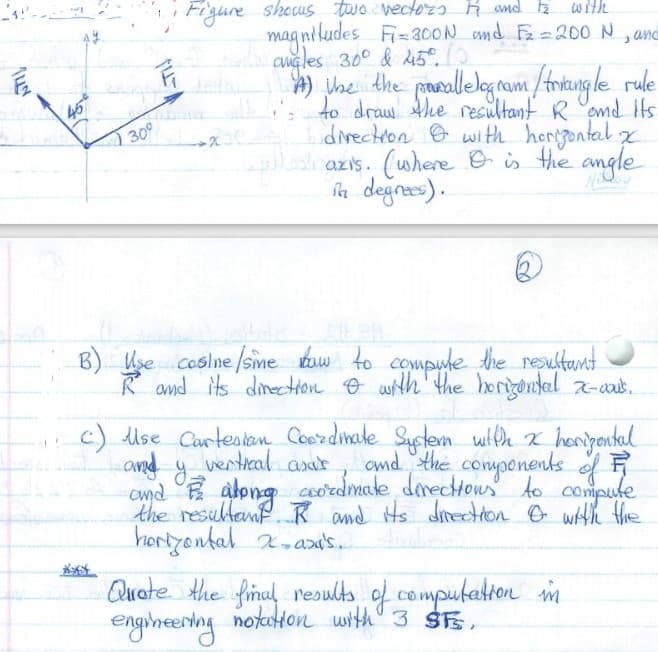 Figure shows two vectors F₁ and F₂ with
magnitudes F₁=300N and F₂=200 N, and
angles 30° & 45°.
A) Use the parallelogram/triangle rule
to draw the resultant R and its
direction θ with horizontal x
axis. (where θ is the angle
in degrees).
y
F₂
F₁
45°
30°
x
2
B) Use cosine/sine law to compute the resultant
R and its direction θ with the horizontal x-axis.
C) Use Cartesian Coordinate System with x horizontal
and y vertical axis, and the components of F₁
and F₂ along coordinate directions to compute
the resultant R and its direction θ with the
horizontal x-axis.
***
Quote the final results of computation in
engineering notation with 3 SFs.